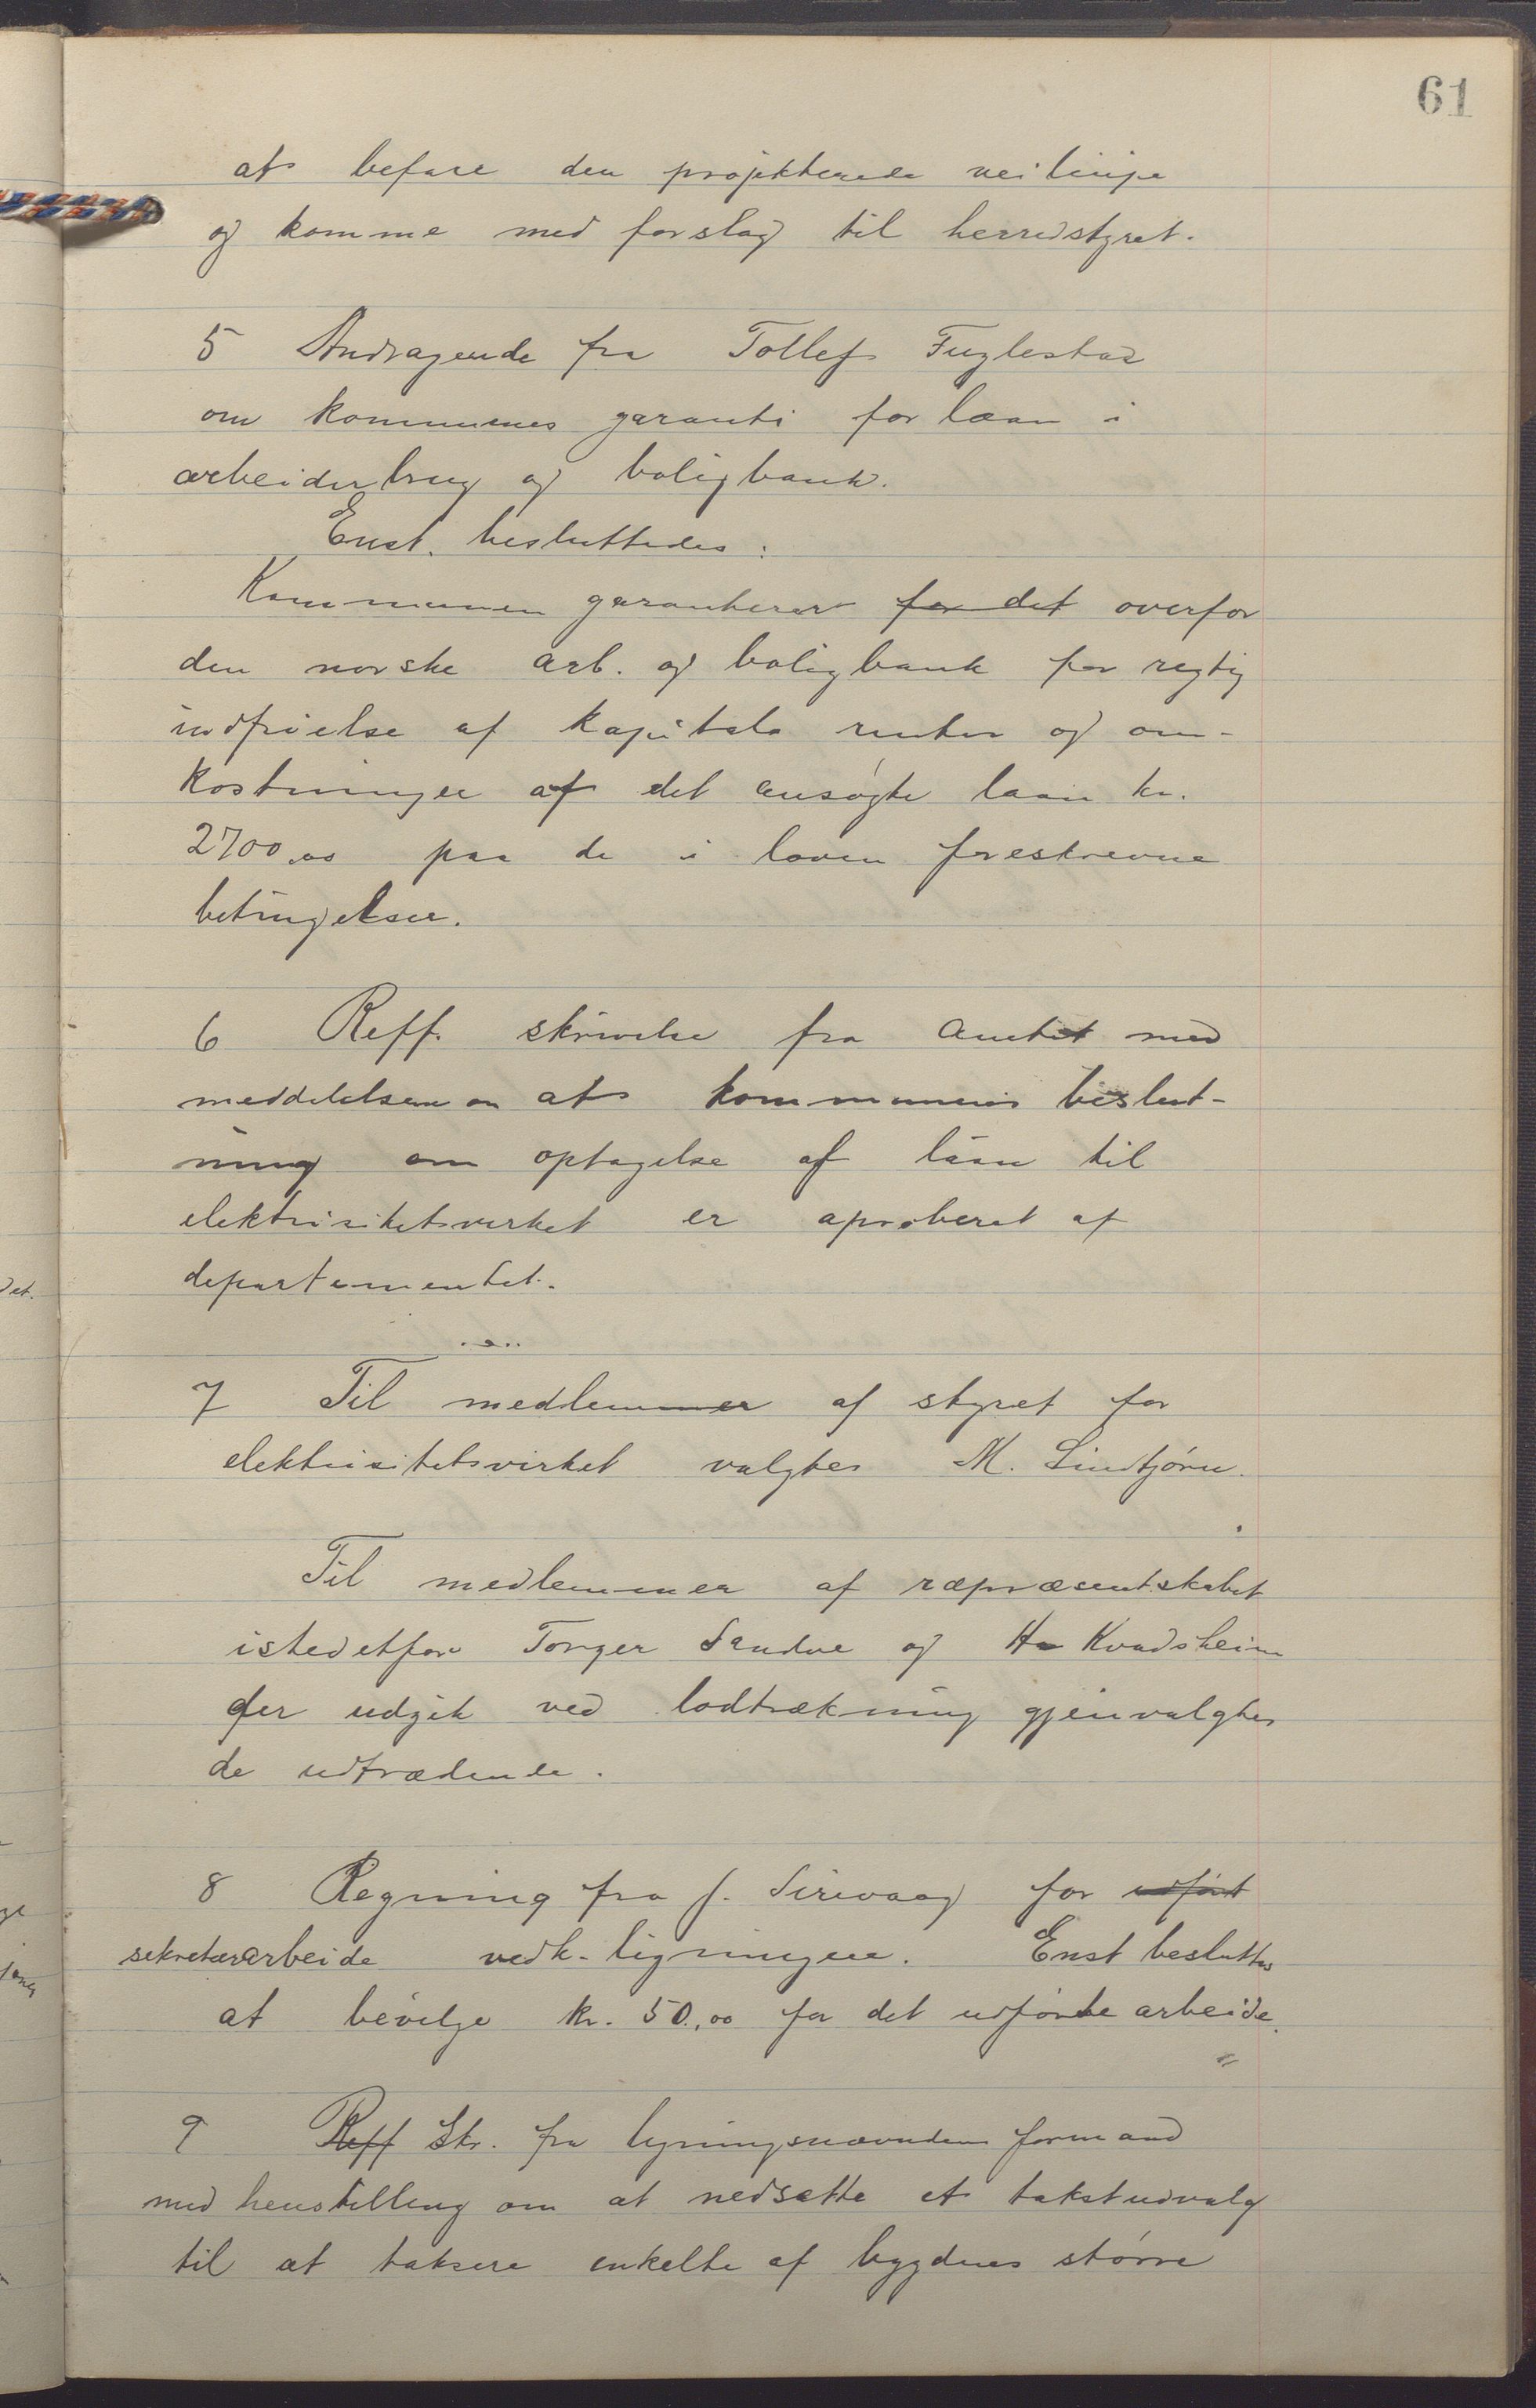 61
at befare den projekterede veilinje
og komme med forslag til herredstyret.
5 Andragende fra Tollef Fuglestad
om kommunes garanti for laan i
arbeiderbrug og boligbank.
Enst. besluttedes:
Kommunen garanterer for det overfor
den norske arb. og boligbank for rigtig
indfrielse af kapitals renter og om-
kostninger af det ansøgte laan kr.
2700.00 paa de i loven foreskrevne
betingelser.
6 Reff. skrivelse fra amtet med
meddelelsen om at kommunens beslut-
ning om optagelse af laan til
elektrisitetsverket er aproberet af
departementet.
7 Til medlemmer af styret for
elektrisitetsvirket valgtes M. Lindtjørn.
Til medlemmer af repræsentskabet
istedetfor Torger Sandve og H Kvadsheim
der udgik ved lodtrækning gjenvalgtes
de udtrædende.
8 Regning fra J. Sirevaag for udført
sekretærarbeide vedk. ligningen. Enst besluttes
at bevilge kr. 50.,00 for det udførte arbeide.
9 Reff Skr. fra ligningsnævndens formand
med henstilling om at nedsætte et takstudvalg
til at taksere enkelte af bygdens større